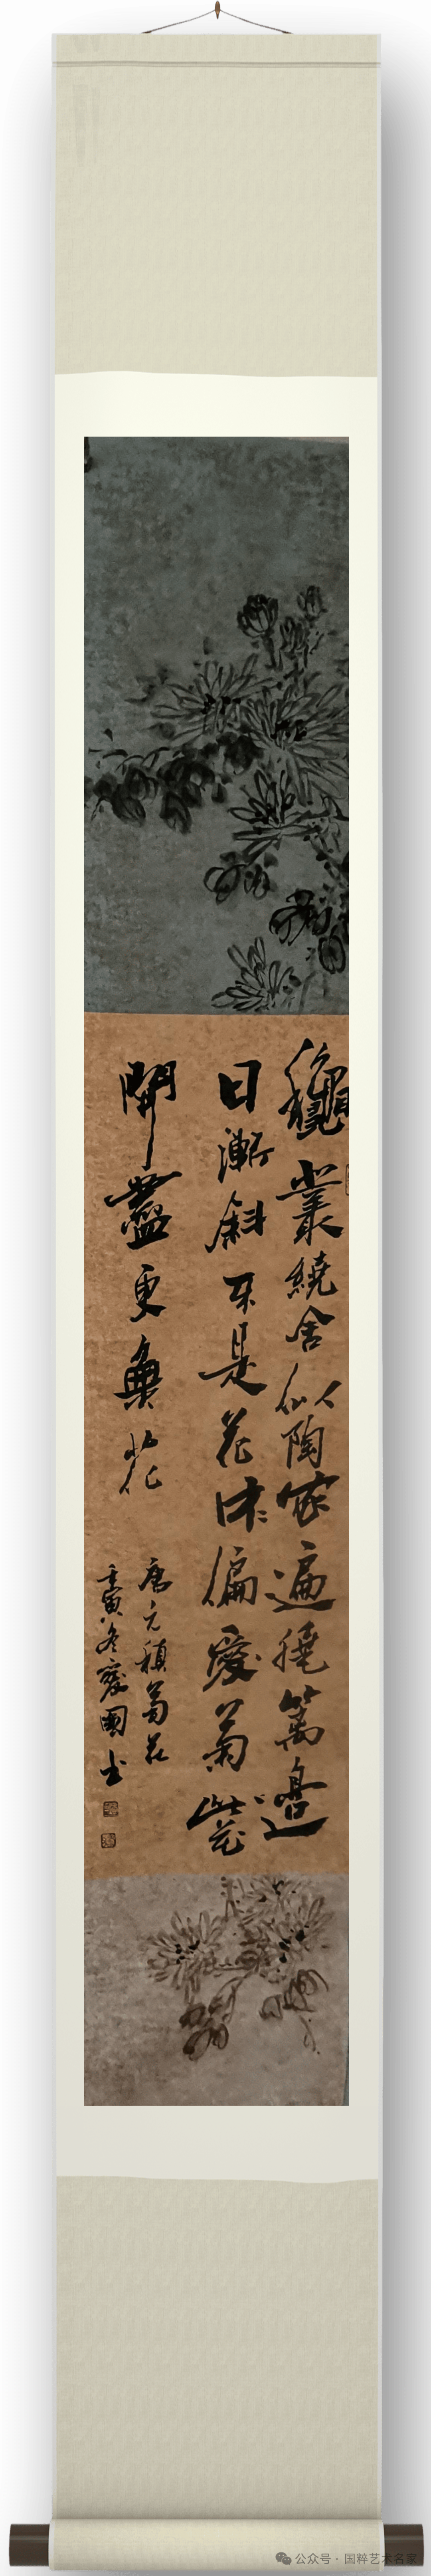 龝叢繞舍似陶家遍繞篱邊
日漸斜不是花中偏愛菊此花
開盡更無花
唐元稹菊花
壬寅冬愛國书
公众号 · 国粹艺术名家